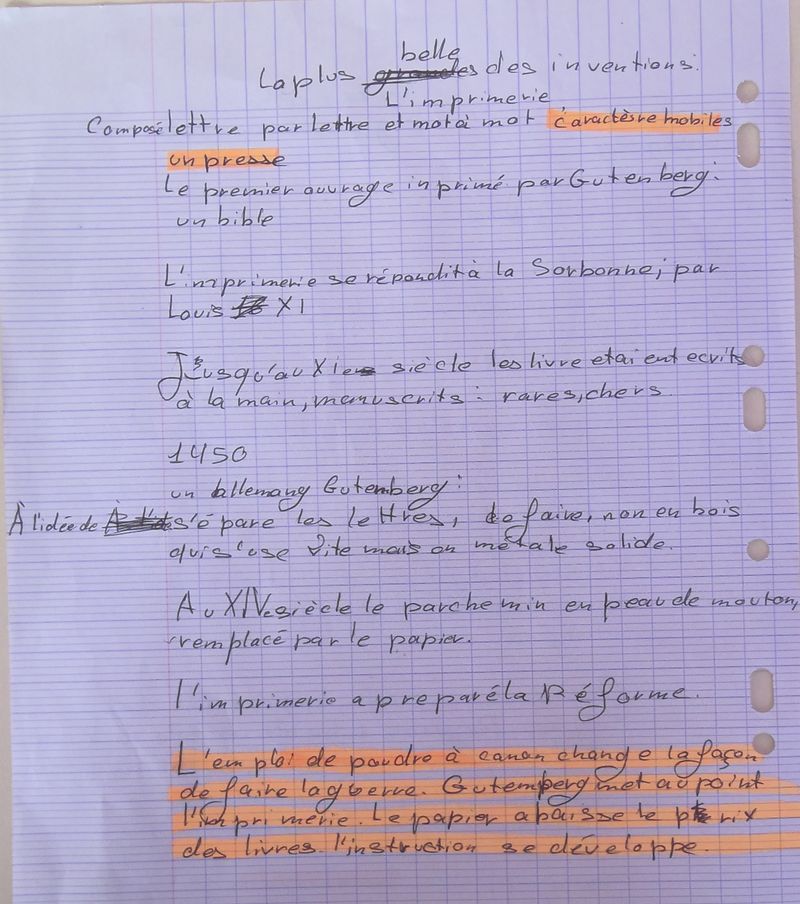 belle
La plus des inventions:
L'imprimerie
Composé lettre par lettre et mot à mot caractèsre mobiles
un presse
Le premier ouvrage inprimé par Gutenberg:
un bible
L'imprimerie se répondit à la Sorbonne, par
Louis XI
Jusqu'au XIe siècle les livre etaient ecrits
à la main, manuscrits: rares, chers.
1450
un allemang Gutemberg:
À l'idée de s'épare les lettres, de faire, non en bois
qui s'use vite mais on métale solide.
Au XIVe siècle le parchemin en peau de mouton,
remplacé par le papier.
l'imprimerie a preparé la Réforme.
L'emploi de poudre à canon change la façon
de faire la guerre. Gutemperg met au point
l'imprimerie. Le papier abaisse le prix
des livres l'instruction se développe.